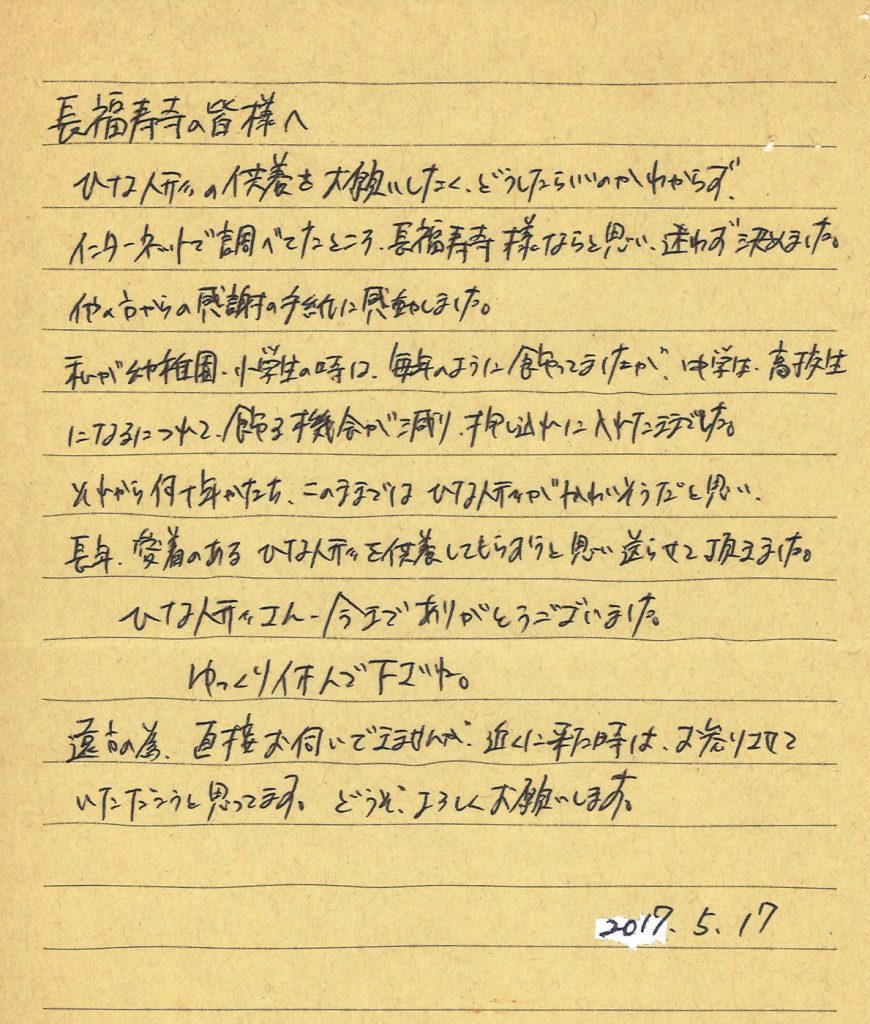 長福寿寺の皆様へ
ひな人形の供養をお願いしたく、どうしたらいいのかわからず、
インターネットで調べてたところ、長福寿寺様ならと思い、迷わず決めました。
他の方からの感謝の手紙に感動しました。
私が幼稚園・小学生の時は、毎年のように飾ってましたが、中学生、高校生
になるにつれて、飾る機会が減り、押し込れに入れたままでした。
それから何十年かたち、このままでは ひな人形がかわいそうだと思い、
長年、愛着のある ひな人形を供養してもらおうと思い送らせて頂きました。
ひな人形さん 今まで ありがとうございました。
ゆっくり休んで下さいね。
遠方の為、直接お伺いできませんが、近くに来た時は、お参りさせて
いただこうと思ってます。 どうぞ、よろしくお願いします。
2017. 5. 17